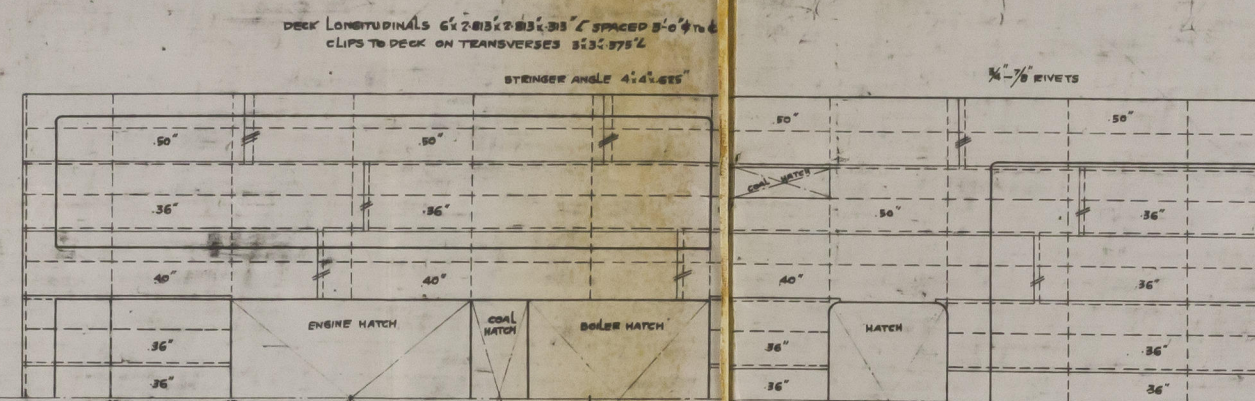 DECK LONGITUDINALS 6"x 2.813"x 2.813"x .313" ∠ SPACED 3'-0" ¢ TO ¢
CLIPS TO DECK ON TRANSVERSES 3"x3"x.375"∠
STRINGER ANGLE 4"x4"x.625"
¾"-⅞" RIVETS
.50" .50" .50" .50"
COAL HATCH
.36" .36" .50" .36"
.40" .40" .40" .36"
ENGINE HATCH
COAL
HATCH
BOILER HATCH
HATCH
.36" .36" .36"
.36" .36" .36"